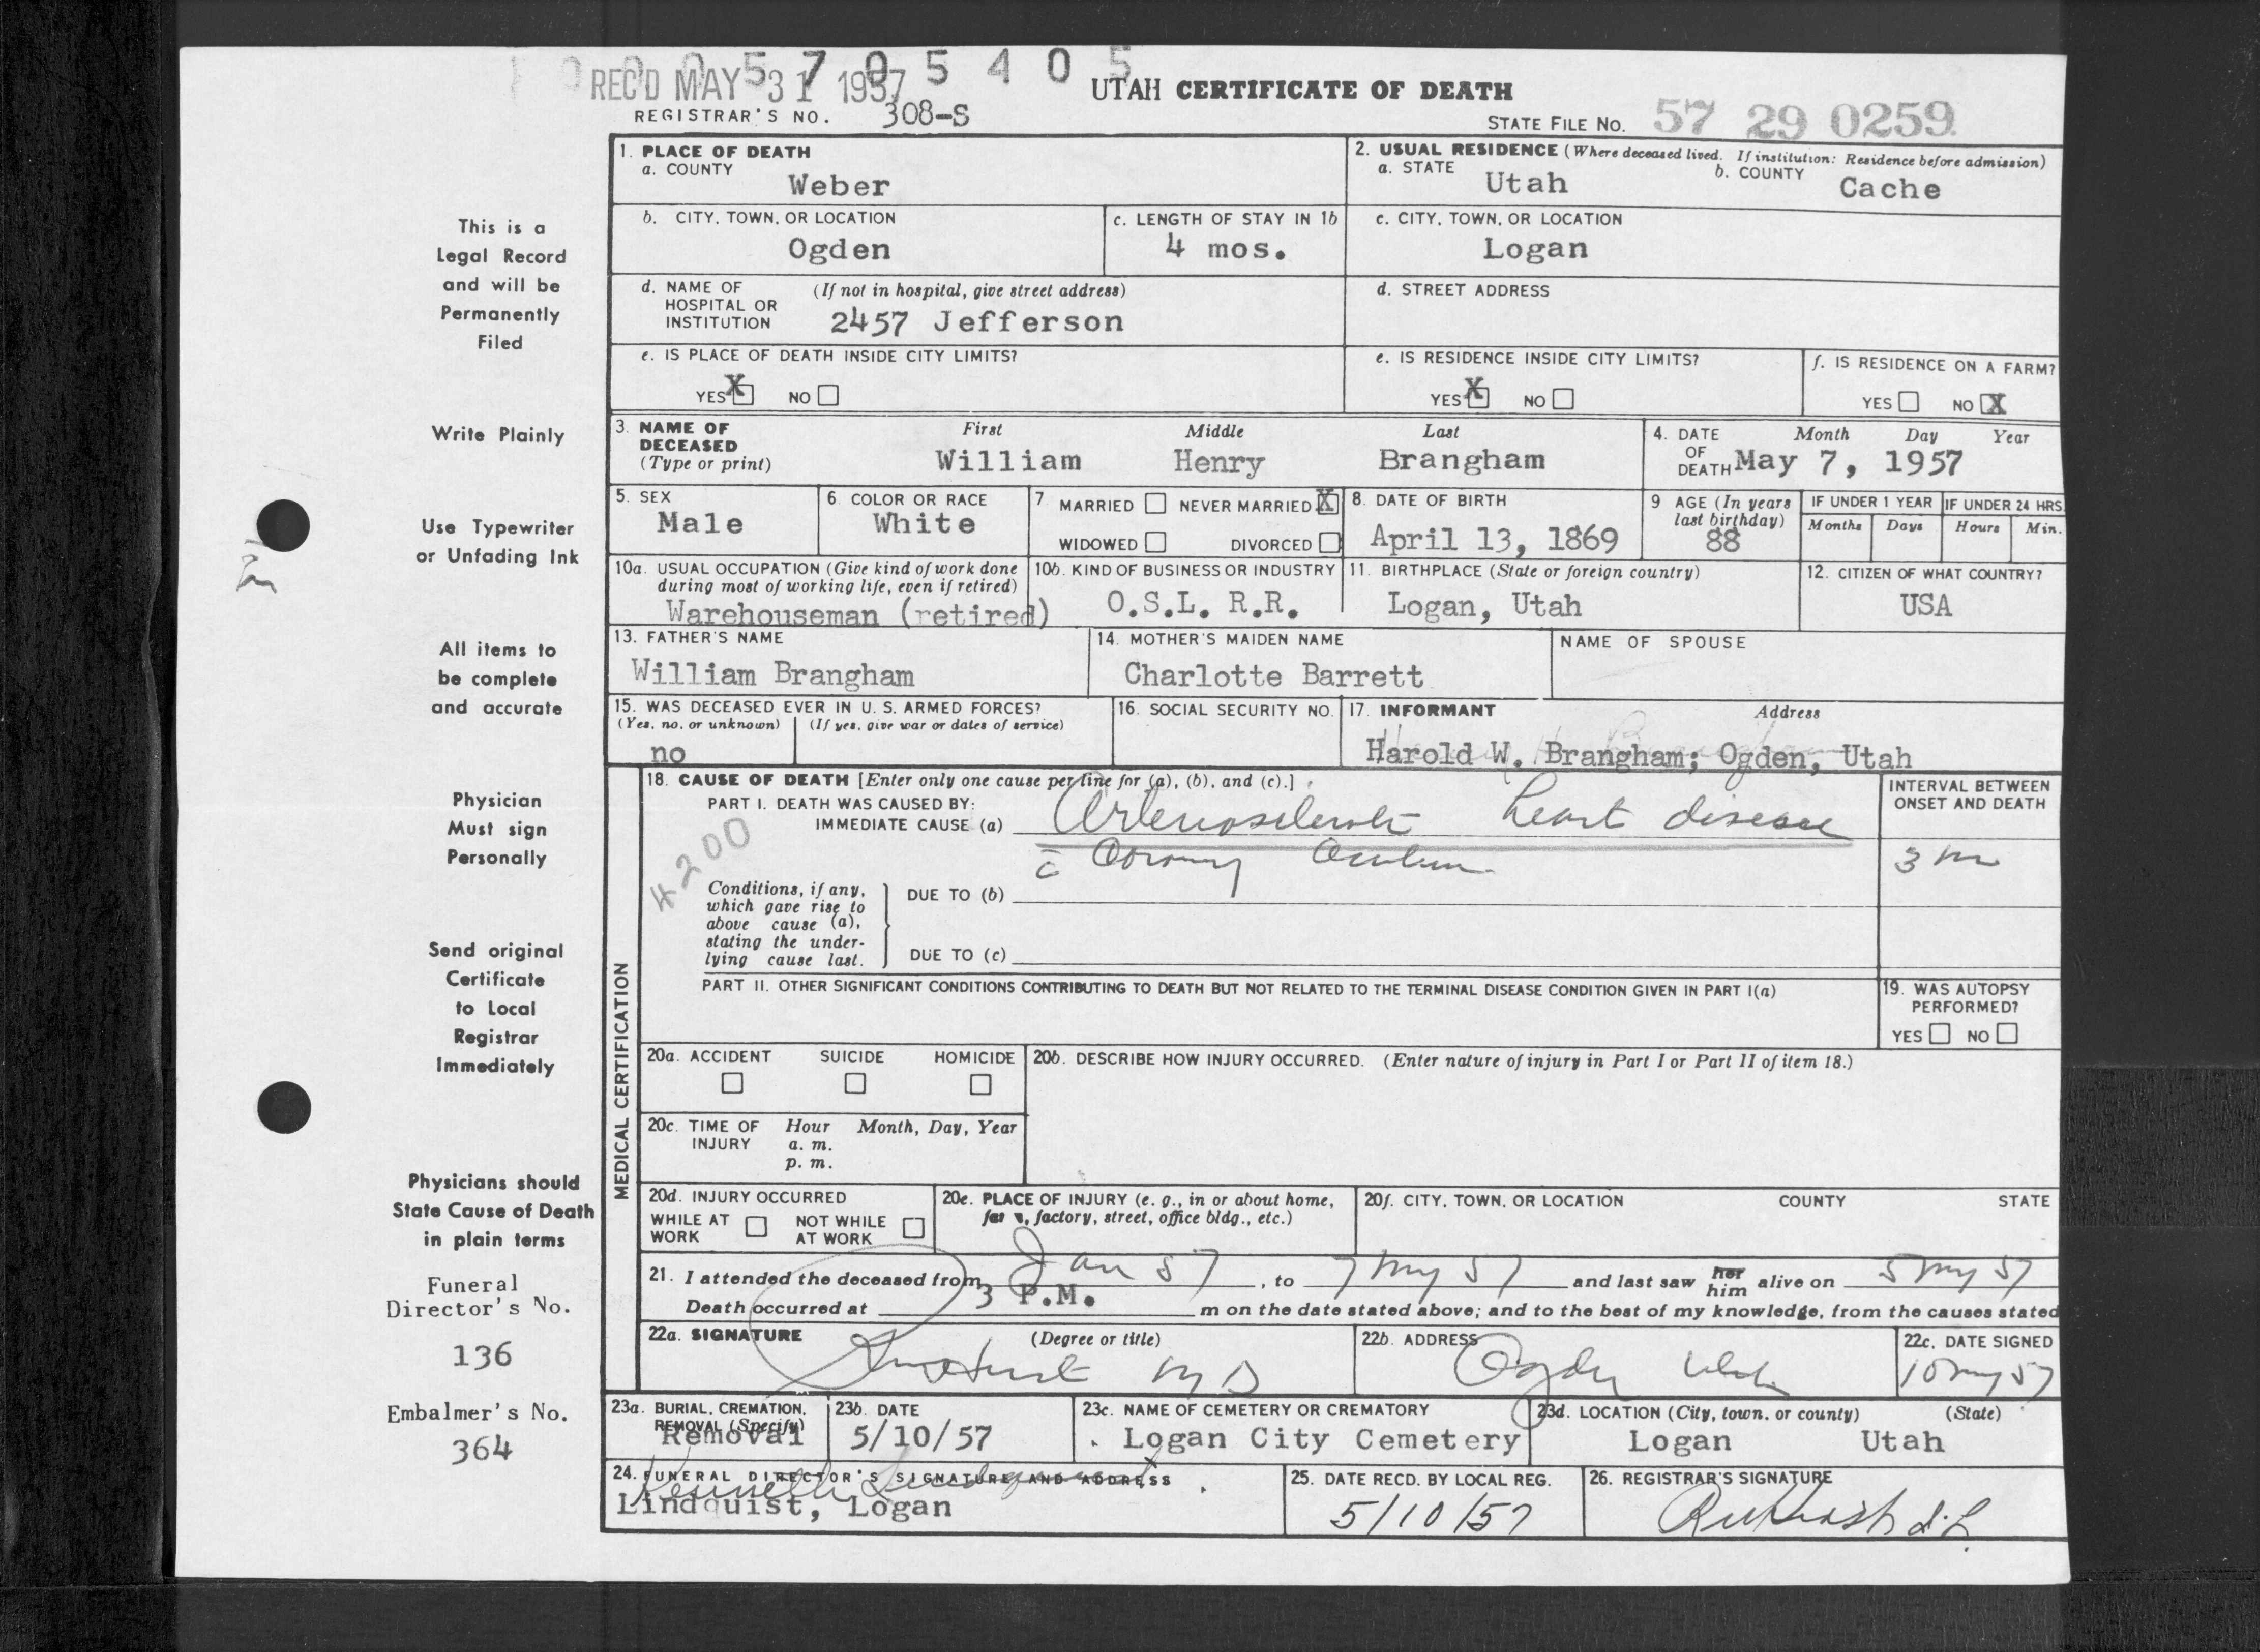 REC'D MAY 31 1957
0 0 5 7 0 5 4 0 5
UTAH CERTIFICATE OF DEATH
REGISTRAR'S NO. 308-S
STATE FILE NO. 57 29 0259
This is a
Legal Record
and will be
Permanently
Filed
Write Plainly
Use Typewriter
or Unfading Ink
All items to
be complete
and accurate
Physician
Must sign
Personally
Send original
Certificate
to Local
Registrar
Immediately
Physicians should
State Cause of Death
in plain terms
Funeral
Director's No.
136
Embalmer's No.
364
1. PLACE OF DEATH
a. COUNTY
Weber
2. USUAL RESIDENCE (Where deceased lived. If institution: Residence before admission)
a. STATE Utah b. COUNTY Cache
b. CITY, TOWN, OR LOCATION
Ogden
c. LENGTH OF STAY IN 1b
4 mos.
c. CITY, TOWN, OR LOCATION
Logan
d. NAME OF (If not in hospital, give street address)
HOSPITAL OR
INSTITUTION 2457 Jefferson
d. STREET ADDRESS
e. IS PLACE OF DEATH INSIDE CITY LIMITS?
YES X NO
e. IS RESIDENCE INSIDE CITY LIMITS?
YES X NO
f. IS RESIDENCE ON A FARM?
YES NO X
3. NAME OF DECEASED
(Type or print)
First Middle Last
William Henry Brangham
4. DATE OF DEATH
Month Day Year
May 7, 1957
5. SEX
Male
6. COLOR OR RACE
White
7 MARRIED NEVER MARRIED X
WIDOWED DIVORCED
8. DATE OF BIRTH
April 13, 1869
9 AGE (In years
last birthday)
88
IF UNDER 1 YEAR
Months Days
IF UNDER 24 HRS.
Hours Min.
10a. USUAL OCCUPATION (Give kind of work done
during most of working life, even if retired)
Warehouseman (retired)
10b. KIND OF BUSINESS OR INDUSTRY
O.S.L. R.R.
11. BIRTHPLACE (State or foreign country)
Logan, Utah
12. CITIZEN OF WHAT COUNTRY?
USA
13. FATHER'S NAME
William Brangham
14. MOTHER'S MAIDEN NAME
Charlotte Barrett
NAME OF SPOUSE
15. WAS DECEASED EVER IN U. S. ARMED FORCES?
(Yes, no, or unknown) (If yes, give war or dates of service)
no
16. SOCIAL SECURITY NO.
17. INFORMANT Address
Harold W. Brangham; Ogden, Utah
MEDICAL CERTIFICATION
18. CAUSE OF DEATH [Enter only one cause per line for (a), (b), and (c).]
PART I. DEATH WAS CAUSED BY:
IMMEDIATE CAUSE (a) Arteriosclerotic heart disease
c̄ Coronary Occlusion
INTERVAL BETWEEN
ONSET AND DEATH
3 m
4200
Conditions, if any,
which gave rise to
above cause (a),
stating the under-
lying cause last.
DUE TO (b)
DUE TO (c)
PART II. OTHER SIGNIFICANT CONDITIONS CONTRIBUTING TO DEATH BUT NOT RELATED TO THE TERMINAL DISEASE CONDITION GIVEN IN PART I(a)
19. WAS AUTOPSY
PERFORMED?
YES NO
20a. ACCIDENT SUICIDE HOMICIDE
20b. DESCRIBE HOW INJURY OCCURRED. (Enter nature of injury in Part I or Part II of item 18.)
20c. TIME OF INJURY
Hour Month, Day, Year
a. m.
p. m.
20d. INJURY OCCURRED
WHILE AT WORK NOT WHILE AT WORK
20e. PLACE OF INJURY (e. g., in or about home,
farm, factory, street, office bldg., etc.)
20f. CITY, TOWN, OR LOCATION COUNTY STATE
21. I attended the deceased from Jan 57, to 7 My 57 and last saw her him alive on 5 My 57
Death occurred at 3 P.M. m on the date stated above; and to the best of my knowledge, from the causes stated
22a. SIGNATURE (Degree or title)
M D
22b. ADDRESS
Ogden Utah
22c. DATE SIGNED
10 My 57
23a. BURIAL, CREMATION,
REMOVAL (Specify)
Removal
23b. DATE
5/10/57
23c. NAME OF CEMETERY OR CREMATORY
Logan City Cemetery
23d. LOCATION (City, town, or county) (State)
Logan Utah
24. FUNERAL DIRECTOR'S SIGNATURE AND ADDRESS
Kenneth Lindquist
Lindquist, Logan
25. DATE RECD. BY LOCAL REG.
5/10/57
26. REGISTRAR'S SIGNATURE